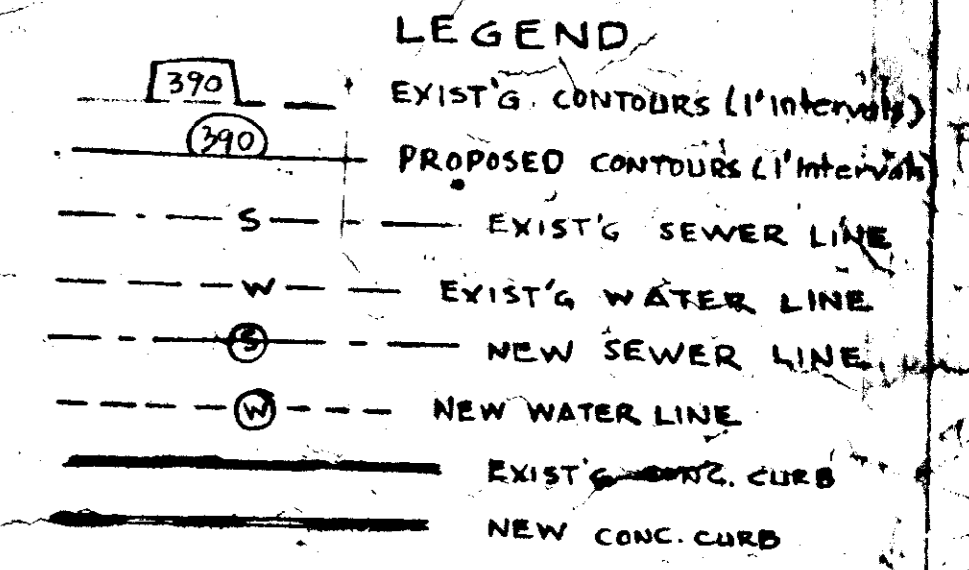 LEGEND
390 EXIST'G. CONTOURS (1' intervals)
390 PROPOSED CONTOURS (1' intervals)
S EXIST'G SEWER LINE
W EXIST'G WATER LINE
S NEW SEWER LINE
W NEW WATER LINE
EXIST'G CONC. CURB
NEW CONC. CURB